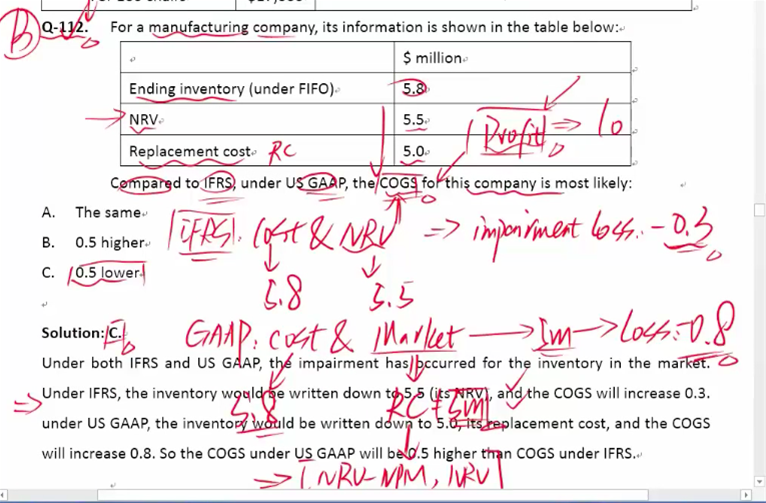 B Q-112. For a manufacturing company, its information is shown in the table below:
$ million
Ending inventory (under FIFO) 5.8
NRV 5.5
Replacement cost RC 5.0
Profit ⇒ 10
Compared to IFRS, under US GAAP, the COGS for this company is most likely:
A. The same
B. 0.5 higher
C. 0.5 lower
IFRS: Cost & NRV ⇒ impairment loss: -0.3
5.8 5.5
Solution: C.
GAAP: cost & Market → 5m → Loss: -0.8
Under both IFRS and US GAAP, the impairment has occurred for the inventory in the market.
Under IFRS, the inventory would be written down to 5.5 (its NRV), and the COGS will increase 0.3.
5.8 RC = 5m
under US GAAP, the inventory would be written down to 5.0, its replacement cost, and the COGS
will increase 0.8. So the COGS under US GAAP will be 0.5 higher than COGS under IFRS.
⇒ [NRV-NPM, NRV]